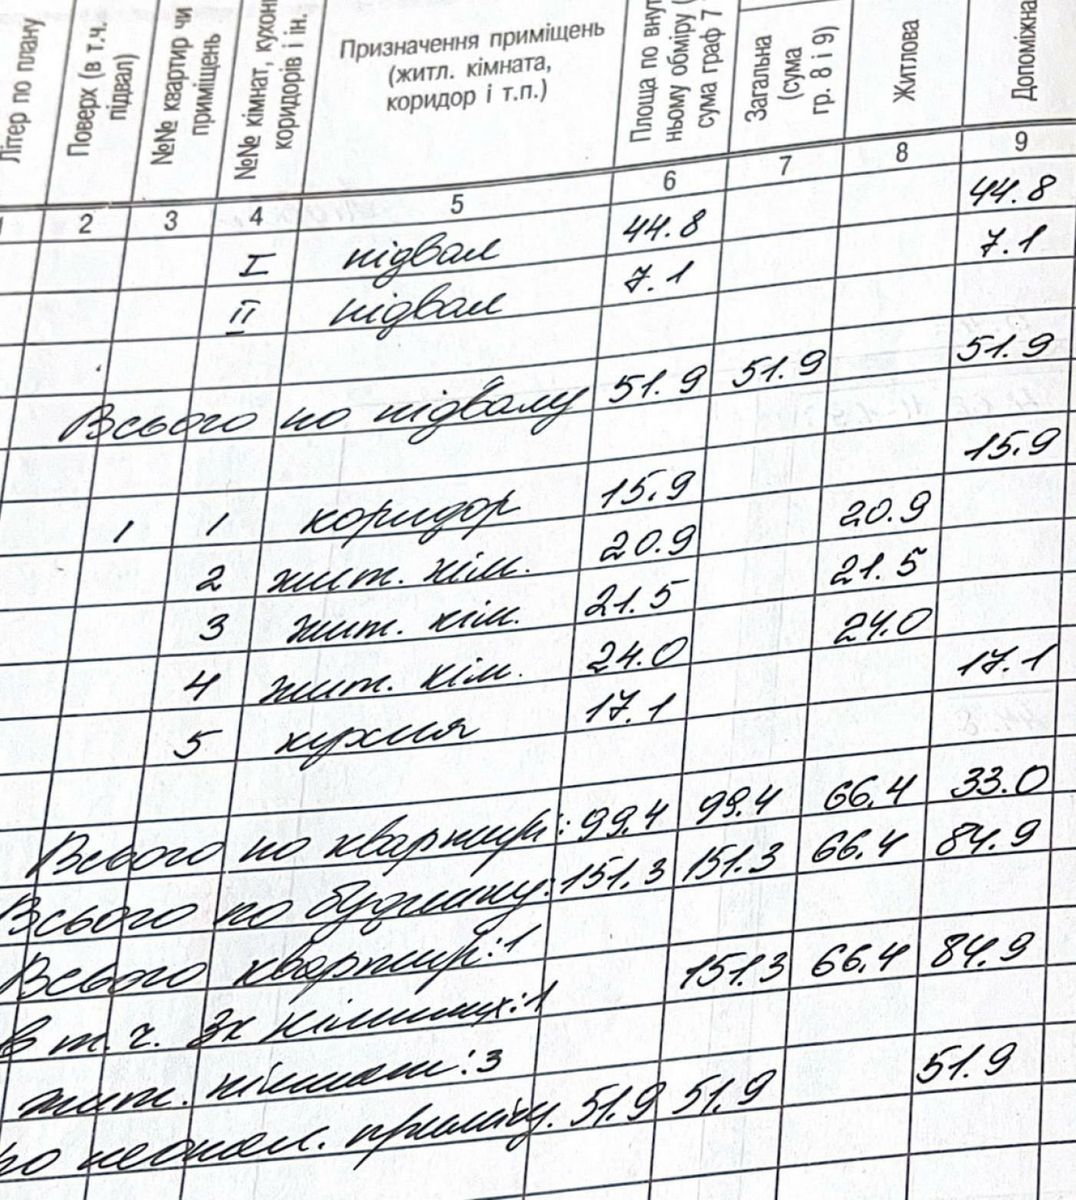 Літер по плану
Поверх (в т.ч. підвал)
№№ квартир чи приміщень
№№ кімнат, кухонь коридорів і ін.
Призначення приміщень
(житл. кімната,
коридор і т.п.)
Площа по внут
ньому обміру (
сума граф 7
Загальна
(сума
гр. 8 і 9)
Житлова
Допоміжна
1 2 3 4 5 6 7 8 9
I підвал 44.8 44.8
II підвал 7.1 7.1
Всього по підвалу 51.9 51.9 51.9
1 1 коридор 15.9 15.9
2 жит. кім. 20.9 20.9
3 жит. кім. 21.5 21.5
4 жит. кім. 24.0 24.0
5 кухня 17.1 17.1
Всього по квартирі: 99.4 99.4 66.4 33.0
Всього по будинку: 151.3 151.3 66.4 84.9
Всього квартир: 1
в т.ч. 3х кімнатних: 1 151.3 66.4 84.9
жит. кімнат: 3
по неосн. приміщ. 51.9 51.9 51.9